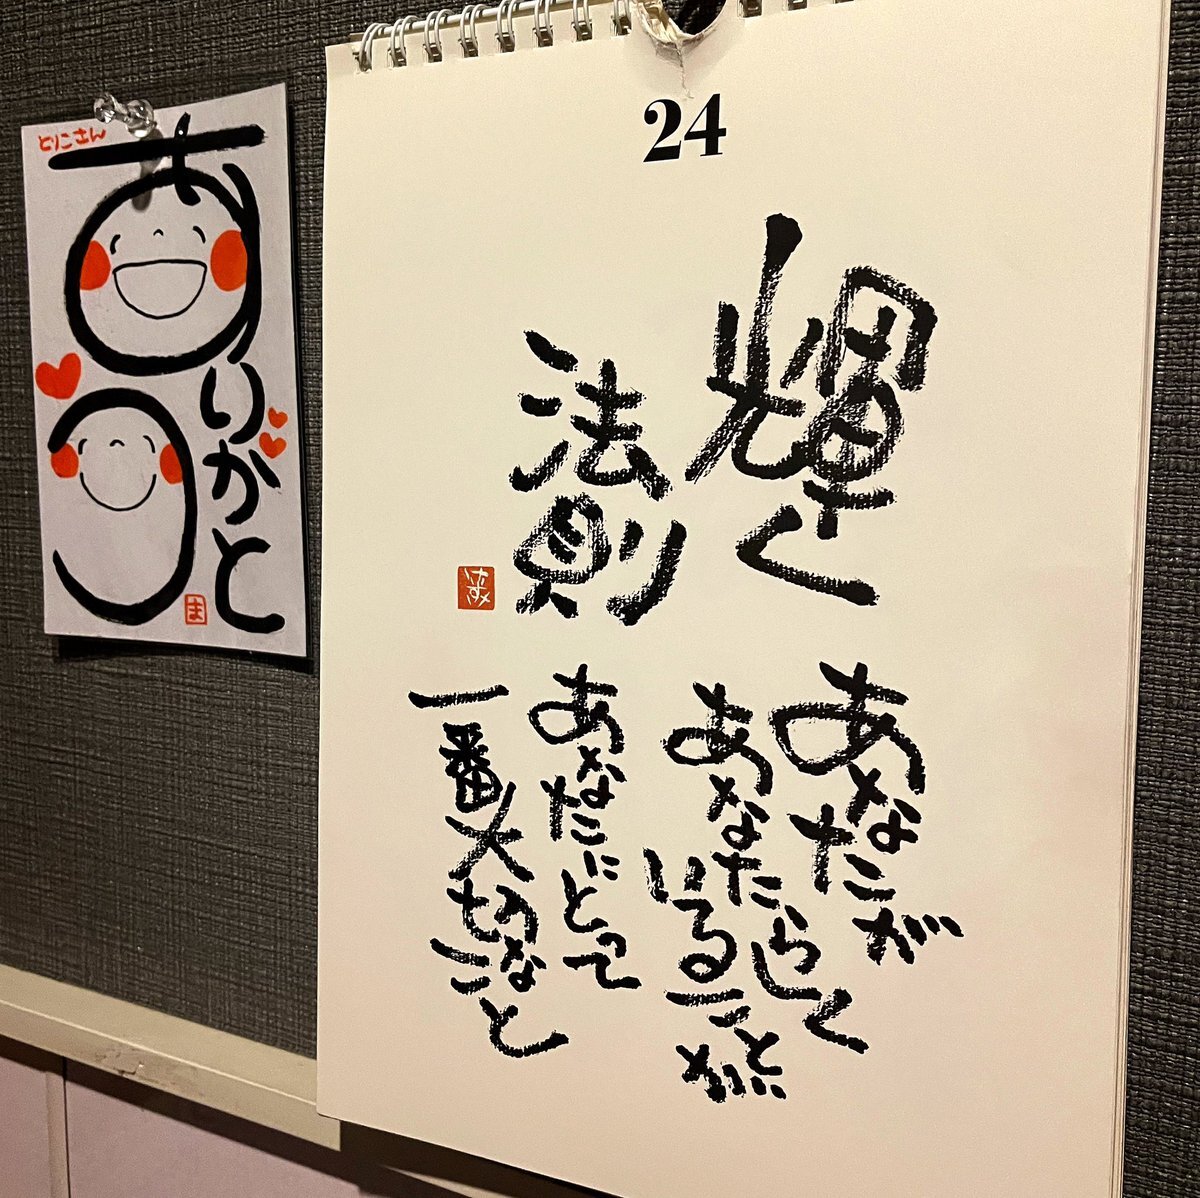 24
輝く
法則
あなたが
あなたらしく
いることが
あなたにとって
一番大切なこと
とりこさん
ありがとう
ま